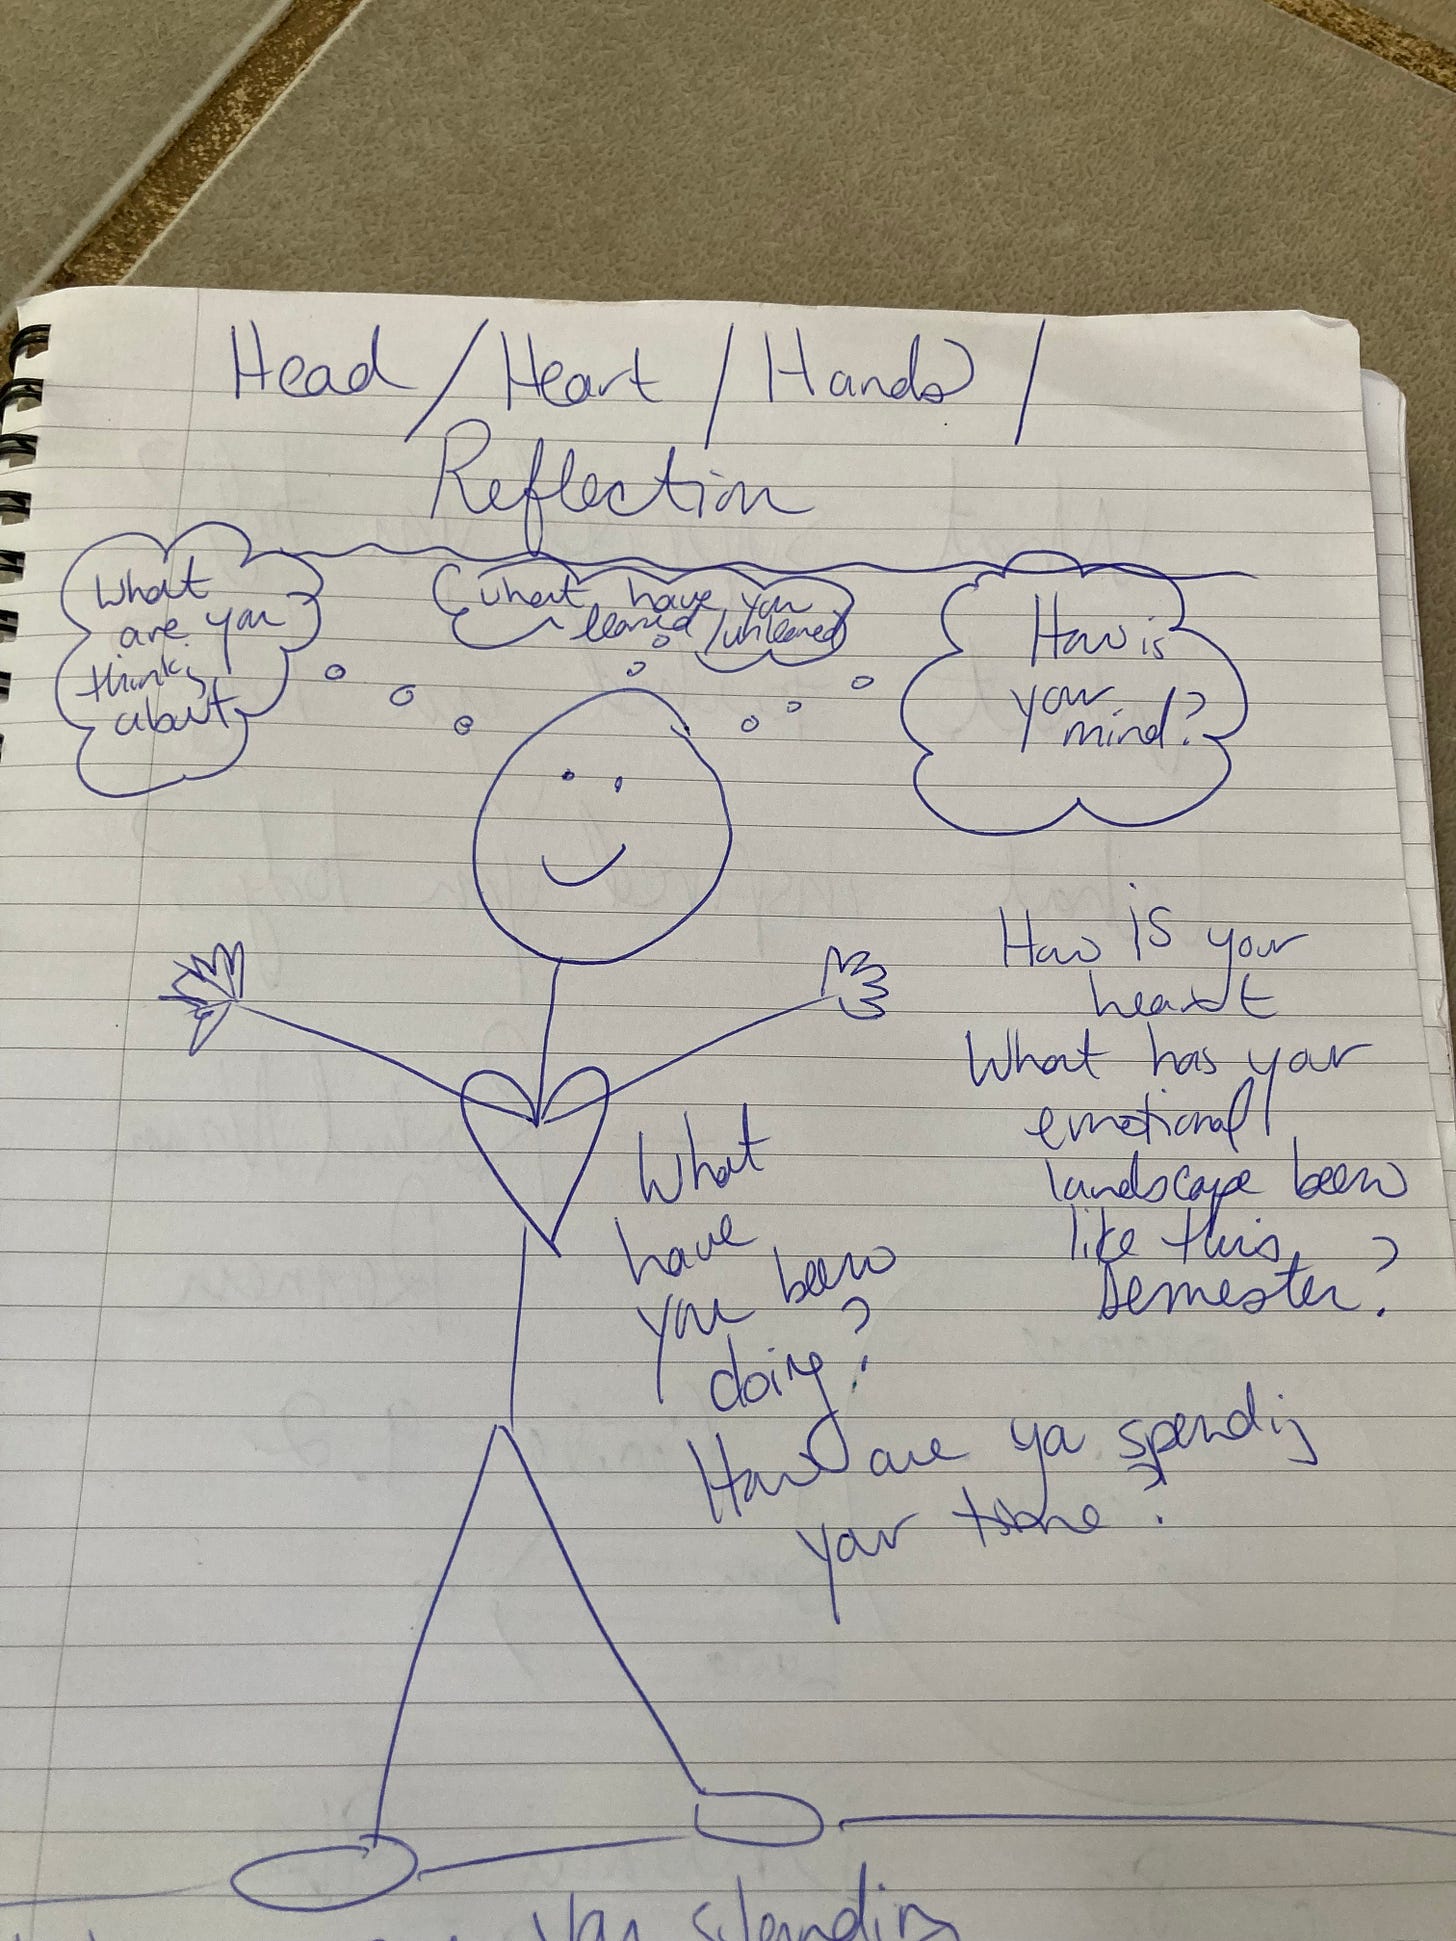 Head / Heart / Hands /
Reflection
What
are you
thinking
about
what have you
learned /unlearned
How is
your
mind?
How is your
heart
What has your
emotional
landscape been
like this
semester?
What
have
you been
doing?
How are ya spending
your time?
standing